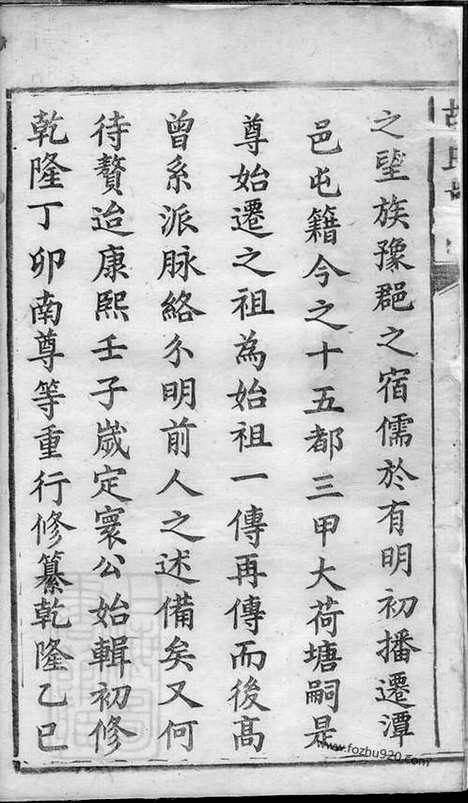 之望族豫郡之宿儒於有明初播遷潭
邑屯籍今之十五都三甲大荷塘嗣是
尊始遷之祖為始祖一傳再傳而後高
曾系派脉絡分明前人之述備矣又何
待贅迨康熙壬子歲定寰公始輯初修
乾隆丁卯南尊等重行修纂乾隆乙巳
www.fozhu920.com